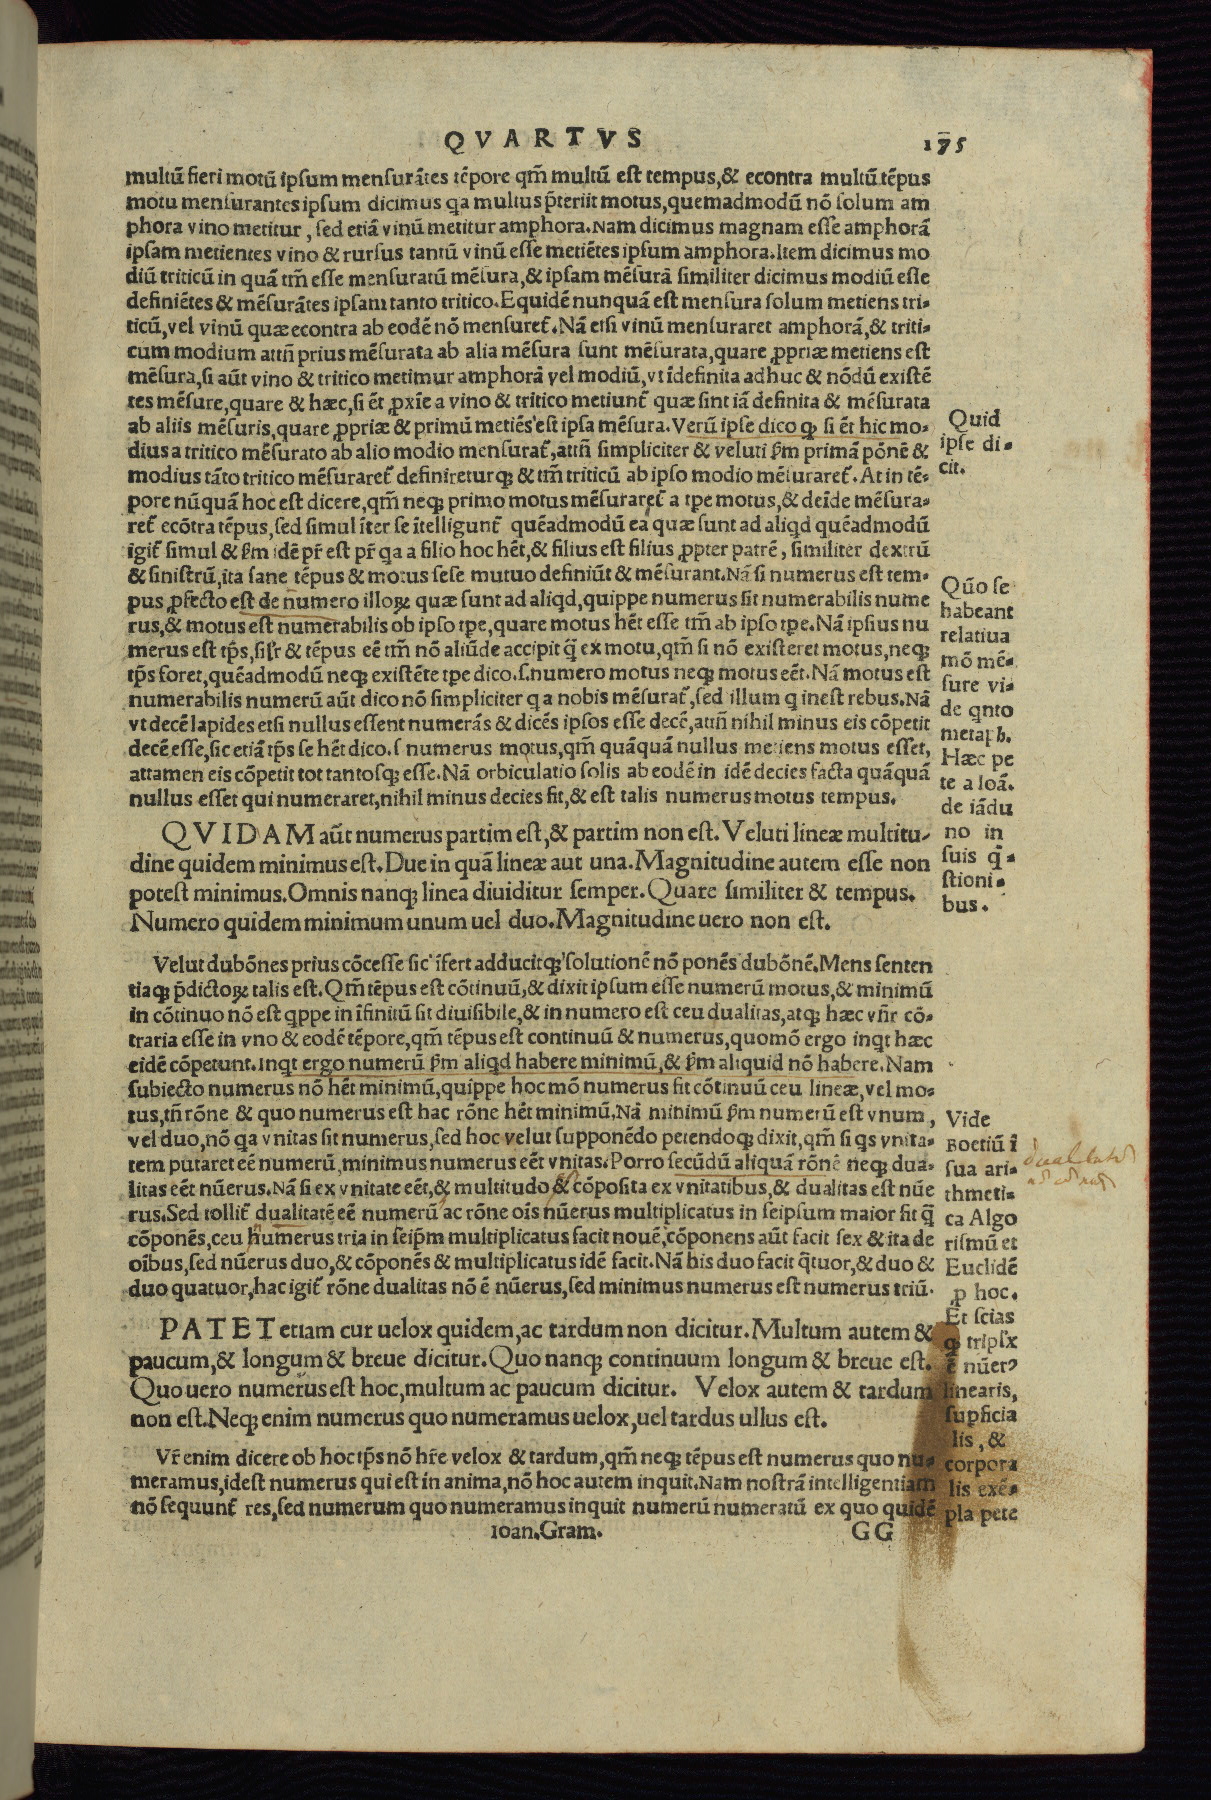 QVARTVS 175
multū fieri motū ipsum mensurātes tēpore qm̄ multū est tempus,& econtra multū tēpus
motu mensurantes ipsum dicimus qa multus p̄teriit motus,quemadmodū nō solum am
phora vino metitur, sed etiā vinū metitur amphora.Nam dicimus magnam esse amphorā
ipsam metientes vino & rursus tantū vinū esse metiētes ipsum amphora.Item dicimus mo
diū triticū in quā tm̄ esse mensuratū mēsura,& ipsam mēsurā similiter dicimus modiū esse
definiētes & mēsurātes ipsam tanto tritico.Equidē nunquā est mensura solum metiens tri-
ticū,vel vinū quæ econtra ab eodē nō mensuret̄.Nā etsi vinū mensuraret amphorā,& triti-
cum modium attn̄ prius mēsurata ab alia mēsura sunt mēsurata,quare ꝓpriæ metiens est
mēsura,si aūt vino & tritico metimur amphorā vel modiū,vt īdefinita adhuc & nōdū existē
tes mēsure,quare & hæc,si ēt ꝓxīe a vino & tritico metiunt̄ quæ sint iā definita & mēsurata
ab aliis mēsuris,quare ꝓpriæ & primū metiēs est ipsa mēsura.Verū ipse dico ꝙ si ēt hic mo-
dius a tritico mēsurato ab alio modio mensurat̄,attn̄ simpliciter & veluti ẜm primā pōnē &
modius tāto tritico mēsuraret̄ definireturqꝫ & tm̄ triticū ab ipso modio mēsuraret̄.At in tē-
pore nūquā hoc est dicere,qm̄ neqꝫ primo motus mēsuraret̄ a tpe motus,& deīde mēsura-
ret̄ ecōtra tēpus,sed simul īter se ītelligunt̄ quēadmodū ea quæ sunt ad aliqd quēadmodū
igit̄ simul & ẜm idē pr̄ est pr̄ qa a filio hoc hēt,& filius est filius ꝓpter patrē, similiter dextrū
& sinistrū,ita sane tēpus & motus sese mutuo definiūt & mēsurant.Nā si numerus est tem-
pus ꝓfecto est de numero illoꝝ quæ sunt ad aliqd,quippe numerus sit numerabilis nume
rus,& motus est numerabilis ob ipso tpe,quare motus hēt esse tm̄ ab ipso tpe.Nā ipsius nu
merus est tp̄s,silr̄ & tēpus eē tm̄ nō aliūde accipit q̄ ex motu,qm̄ si nō existeret motus,neqꝫ
tp̄s foret,quēadmodū neqꝫ existēte tpe dico.s.numero motus neqꝫ motus eēt.Nā motus est
numerabilis numerū aūt dico nō simpliciter q a nobis mēsurat̄,sed illum q inest rebus.Nā
vt decē lapides etsi nullus essent numerās & dicēs ipsos esse decē,attn̄ nihil minus eis cōpetit
decē esse,sic etiā tp̄s se hēt dico.s numerus motus,qm̄ quāquā nullus metiens motus esset,
attamen eis cōpetit tot tantosqꝫ esse.Nā orbiculatio solis ab eodē in idē decies facta quāquā
nullus esset qui numeraret,nihil minus decies fit,& est talis numerus motus tempus.
Quid
ipse di-
cit.
Quō se
habeant
relatiua
mō mē-
sure vi-
de qnto
metaph.
Hæc pe
te a Ioā.
de iādu
no in
suis q̄-
stioni-
bus.
QVIDAM aūt numerus partim est,& partim non est.Veluti lineæ multitu-
dine quidem minimus est.Due in quā lineæ aut una.Magnitudine autem esse non
potest minimus.Omnis nanqꝫ linea diuiditur semper.Quare similiter & tempus.
Numero quidem minimum unum uel duo.Magnitudine uero non est.
Velut dubōnes prius cōcesse sic īfert adducitqꝫ solutionē nō ponēs dubōnē.Mens senten
tiaqꝫ p̄dictoꝝ talis est.Qm̄ tēpus est cōtinuū,& dixit ipsum esse numerū motus,& minimū
in cōtinuo nō est qppe in īfinitū sit diuisibile,& in numero est ceu dualitas,atqꝫ hæc vn̄r cō-
traria esse in vno & eodē tēpore,qm̄ tēpus est continuū & numerus,quomō ergo inqt hæc
eidē cōpetunt.Inqt ergo numerū ẜm aliqd habere minimū,& ẜm aliquid nō habere.Nam
subiecto numerus nō hēt minimū,quippe hoc mō numerus fit cōtinuū ceu lineæ,vel mo-
tus,tn̄ rōne & quo numerus est hac rōne hēt minimū.Nā minimū ẜm numerū est vnum,
vel duo,nō qa vnitas sit numerus,sed hoc velut supponēdo petendoqꝫ dixit,qm̄ si qs vnita-
tem putaret eē numerū,minimus numerus eēt vnitas.Porro secūdū aliquā rōnē neqꝫ dua-
litas eēt nūerus.Nā si ex vnitate eēt,& multitudo & cōposita ex vnitatibus,& dualitas est nūe
rus.Sed tollit̄ dualitatē eē numerū ac rōne oīs nūerus multiplicatus in seipsum maior fit q̄
cōponēs,ceu numerus tria in seip̄m multiplicatus facit nouē,cōponens aūt facit sex & ita de
oībus,sed nūerus duo,& cōponēs & multiplicatus idē facit.Nā his duo facit q̄tuor,& duo &
duo quatuor,hac igit̄ rōne dualitas nō ē nūerus,sed minimus numerus est numerus triū.
Vide
Boetiū ī
sua ari-
thmeti-
ca Algo
rismū et
Euclidē
ꝓ hoc.
Et scias
ꝙ tripſx
ē nūerꝰ
linearis,
supficia
lis, &
corpora
lis exē-
pla pete
PATET etiam cur uelox quidem,ac tardum non dicitur.Multum autem &
paucum,& longum & breue dicitur.Quo nanqꝫ continuum longum & breue est.
Quo uero numerus est hoc,multum ac paucum dicitur. Velox autem & tardum
non est.Neqꝫ enim numerus quo numeramus uelox,uel tardus ullus est.
Vr̄ enim dicere ob hoc tp̄s nō hr̄e velox & tardum,qm̄ neqꝫ tēpus est numerus quo nu-
meramus,idest numerus qui est in anima,nō hoc autem inquit.Nam nostrā intelligentiam
nō sequunt̄ res,sed numerum quo numeramus inquit numerū numeratū ex quo quidē
Ioan.Gram. GG